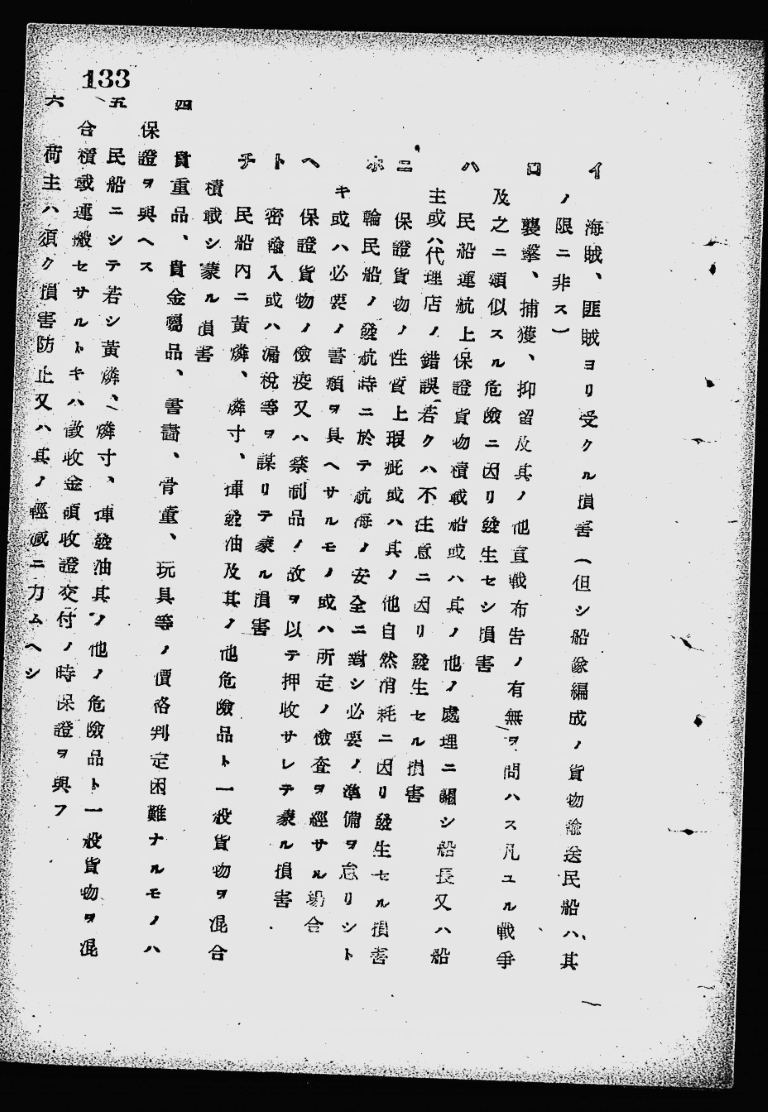 133
イ 海賊、匪賊ヨリ受クル損害(但シ船隊編成ノ貨物輸送民船ハ、其
ノ限ニ非ス)
ロ 襲撃、捕獲、抑留及其ノ他直戦布告ノ有無ヲ問ハス凡ユル戦爭
及之ニ類似スル危險ニ因リ發生セシ損害
ハ 民船運航上保證貨物積載船或ハ其ノ他ノ處理ニ關シ船長又ハ船
主或ハ代理店ノ錯誤若クハ不注意ニ因リ發生セル損害
ニ 保證貨物ノ性質上瑕疵或ハ其ノ他自然消耗ニ因リ發生セル損害
ホ 輪民船ノ發航時ニ於テ航海ノ安全ニ對シ必要ノ準備ヲ怠リシト
キ或ハ必要ノ書類ヲ具ヘサルモノ或ハ所定ノ檢査ヲ經サル場合
ヘ 保證貨物ノ檢疫又ハ禁制品ノ故ヲ以テ押收サレテ蒙ル損害
ト 密輸入或ハ漏税等ヲ謀リテ蒙ル損害
チ 民船内ニ黃燐、燐寸、揮發油及其ノ他危險品ト一般貨物ヲ混合
積載シ蒙ル損害
四 貴重品、貴金屬品、書畵、骨董、玩具等ノ價格判定困難ナルモノハ
保證ヲ與ヘス
五 民船ニシテ若シ黃燐、燐寸、揮發油其ノ他ノ危險品ト一般貨物ヲ混
合積載運搬セサルトキハ徴收金領收證交付ノ時保證ヲ與フ
六 荷主ハ須ク損害防止又ハ其ノ輕減ニ力ムヘシ